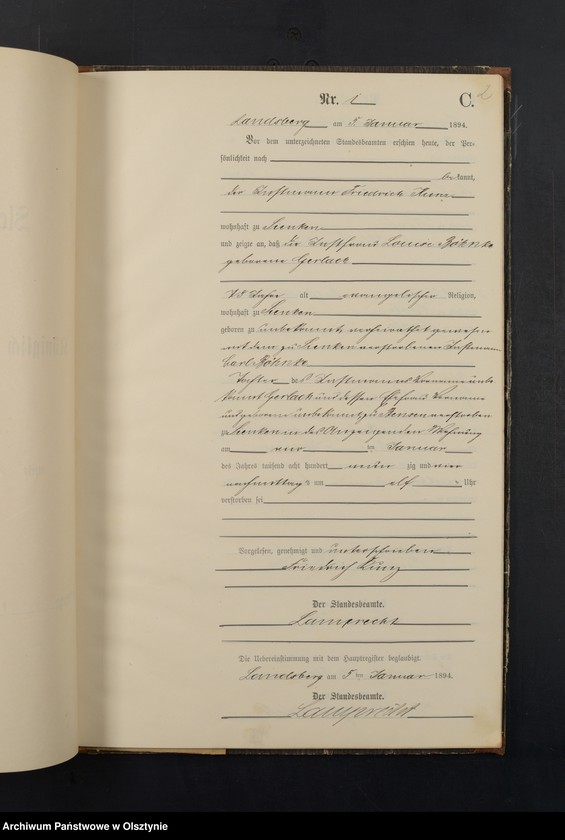 Nr. 1 C. 2
Landsberg am 5. Januar 1894.
Vor dem unterzeichneten Standesbeamten erschien heute, der Per-
sönlichkeit nach
bekannt,
der Instmann Friedrich
wohnhaft zu Seenken
und zeigte an, daß die Instfrau Louise Böhnke
geborene Gerlach
Jahre alt evangelischer Religion,
wohnhaft zu Seenken
geboren zu unbekannt, verheirathet gewesen
mit dem zu Seenken verstorbenen Instmann
Carl Böhnke
Tochter des Instmanns Vorname unbe-
kannt Gerlach und dessen Ehefrau Vorname
und geborene unbekannt, zu verstorben
zu Seenken in des Anzeigenden Wohnung
am vier ten Januar
des Jahres tausend acht hundert neun zig und vier
nachmittags um elf Uhr
verstorben sei
Vorgelesen, genehmigt und unterschrieben
Friedrich
Der Standesbeamte.
Lamprecht
Die Uebereinstimmung mit dem Hauptregister beglaubigt.
Landsberg am 5 ten Januar 1894.
Der Standesbeamte.
Lamprecht
Archiwum Państwowe w Olsztynie